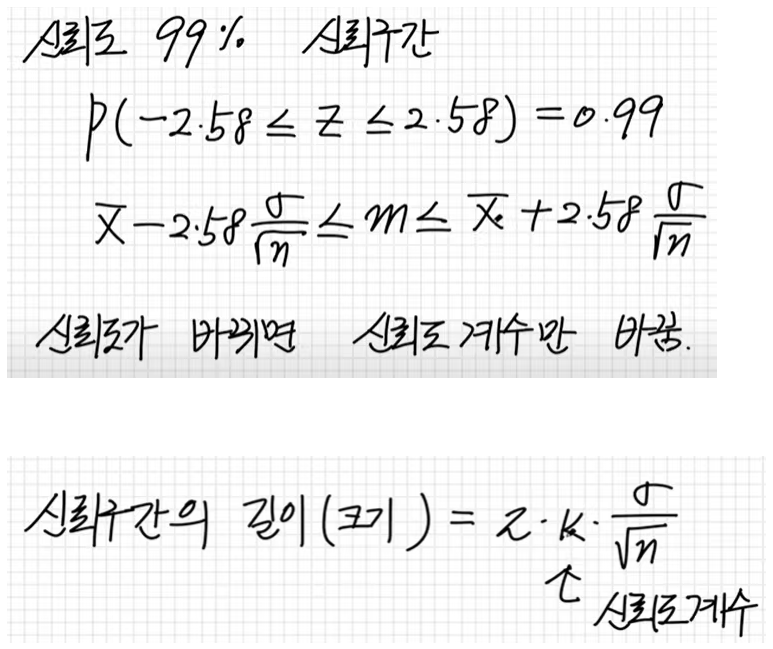 신뢰도 99% 신뢰구간
P(-2.58 ≤ Z ≤ 2.58) = 0.99
X̄ - 2.58 σ/√n ≤ m ≤ X̄ + 2.58 σ/√n
신뢰도가 바뀌면 신뢰도계수만 바꿈.
신뢰구간의 길이(크기) = 2·k·σ/√n
↑
신뢰도계수